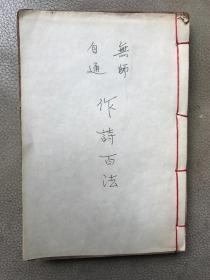 無師
自通
作詩百法